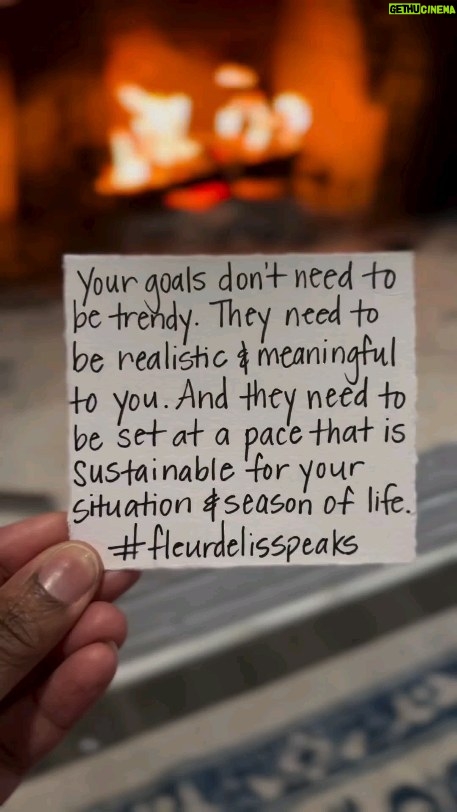 GETHUCINEMA
Your goals don't need to
be trendy. They need to
be realistic & meaningful
to you. And they need to
be set at a pace that is
sustainable for your
situation & season of life.
#fleurdelisspeaks